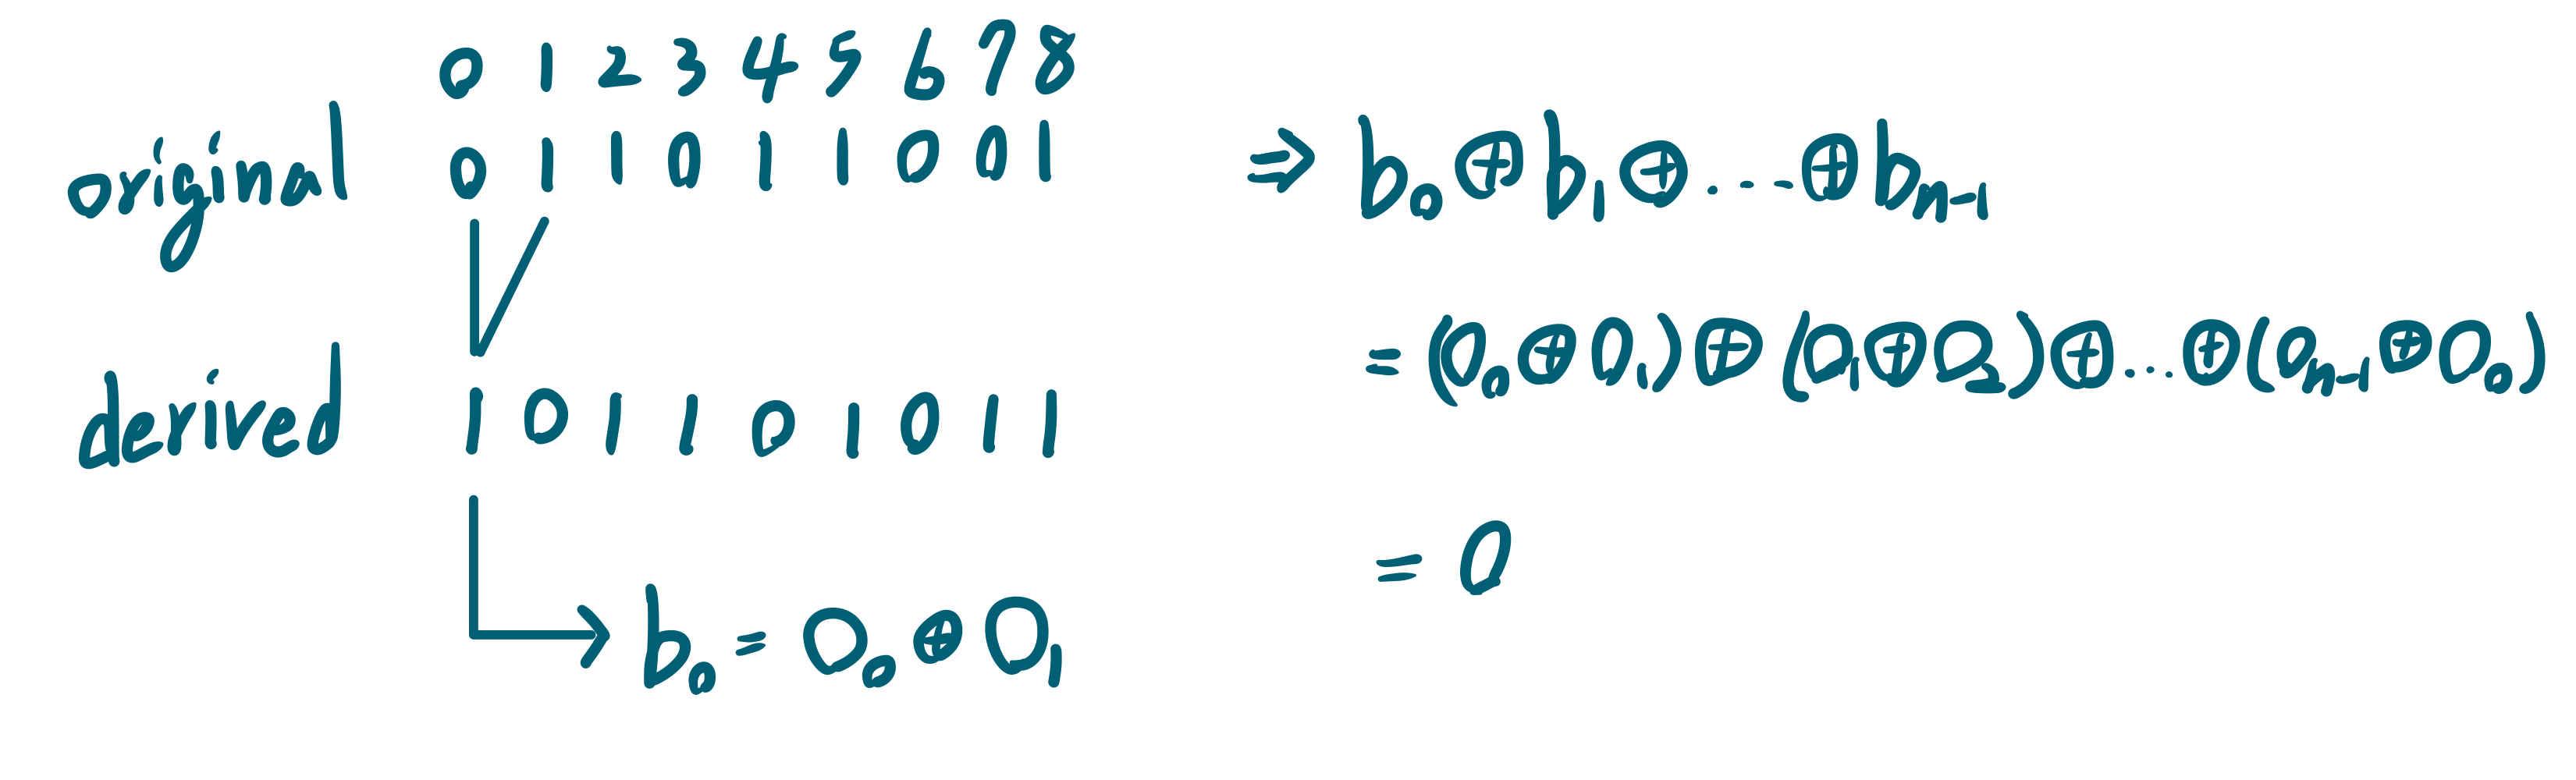 0 1 2 3 4 5 6 7 8
original 0 1 1 0 1 1 0 0 1
derived 1 0 1 1 0 1 0 1 1
b₀ = O₀ ⊕ O₁
⇒ b₀ ⊕ b₁ ⊕ ... ⊕ bₙ₋₁
= (O₀ ⊕ O₁) ⊕ (O₁ ⊕ O₂) ⊕ ... ⊕ (Oₙ₋₁ ⊕ O₀)
= 0